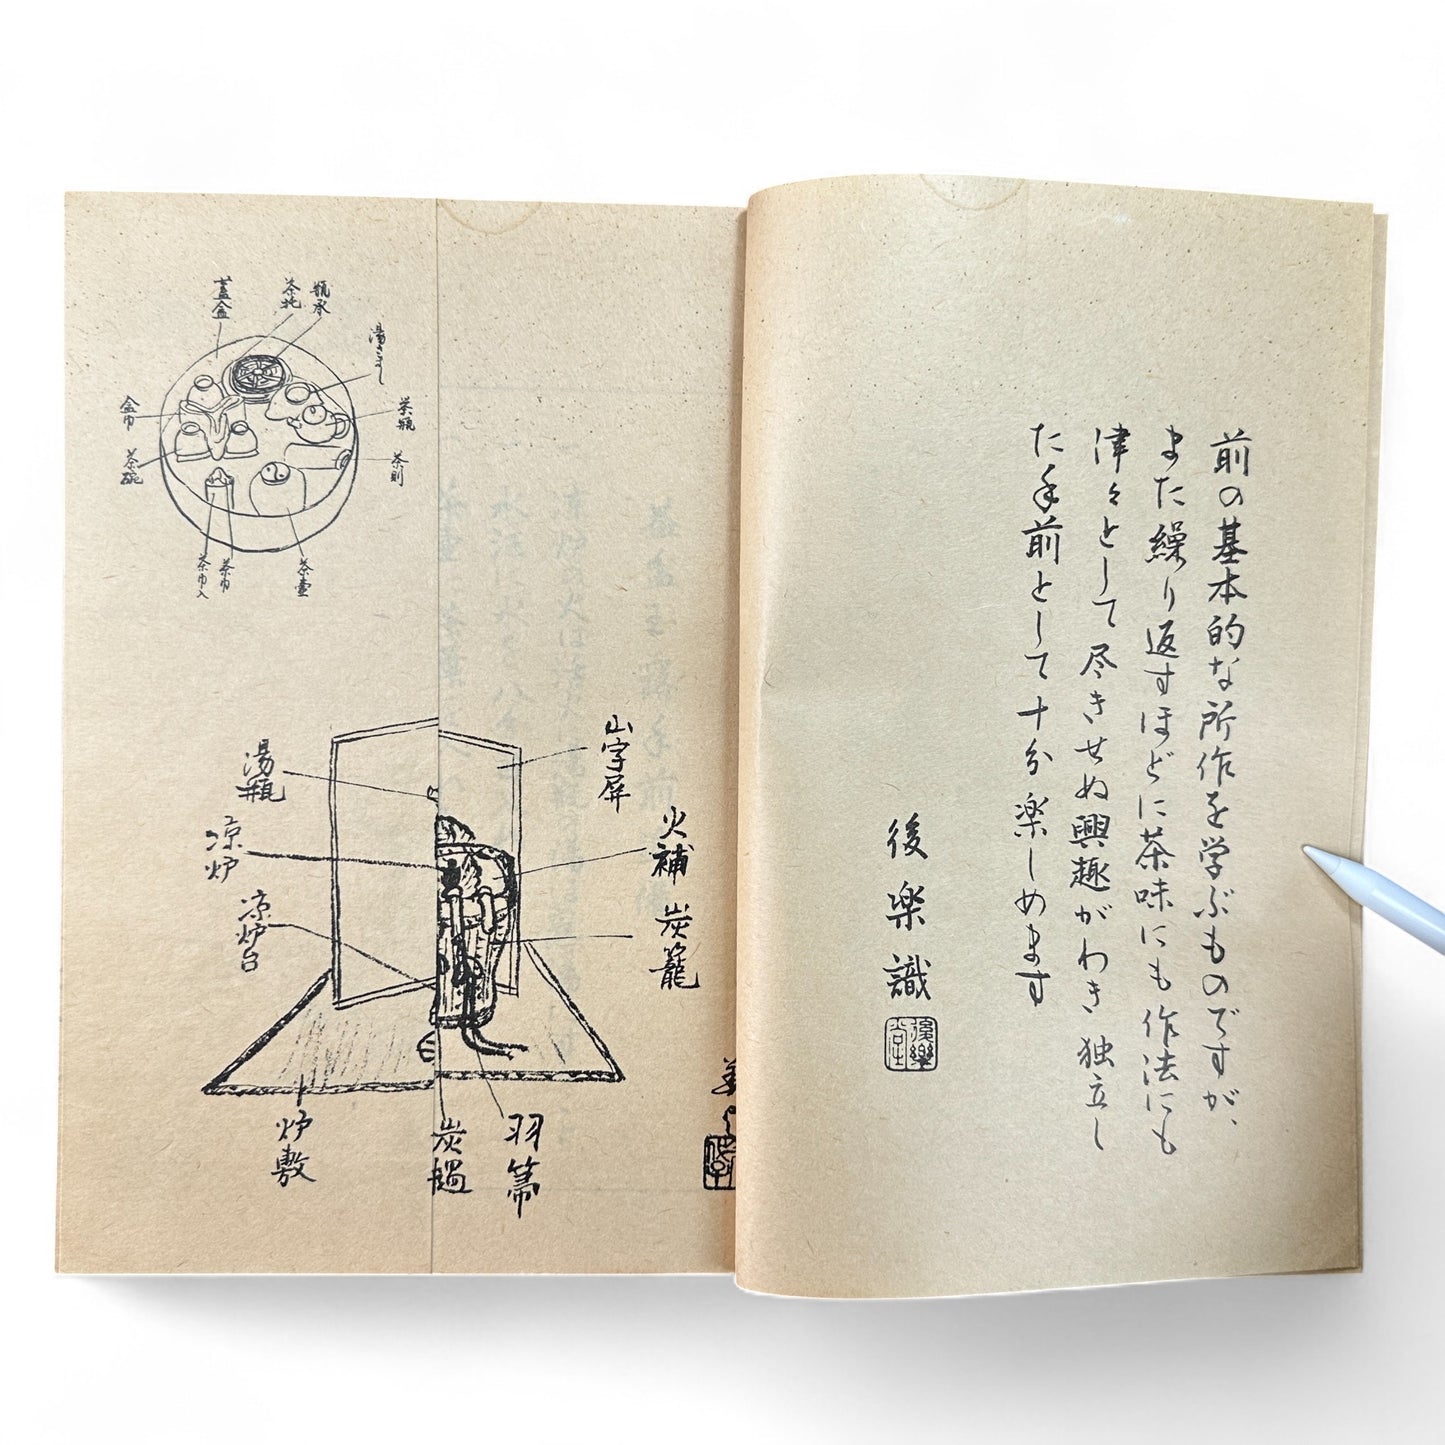 前の基本的な所作を学ぶものですが、
また繰り返すほどに茶味にも作法にも
津々として尽きせぬ興趣がわき独立し
た手前として十分楽しめます
後楽識
後樂堂
瓶承
茶托
蓋盒
湯さまし
茶瓶
茶則
盆巾
茶碗
茶壷
茶巾
茶巾入
山字屏
火補
炭籠
湯瓶
凉炉
凉炉台
羽箒
炭檛
炉敷